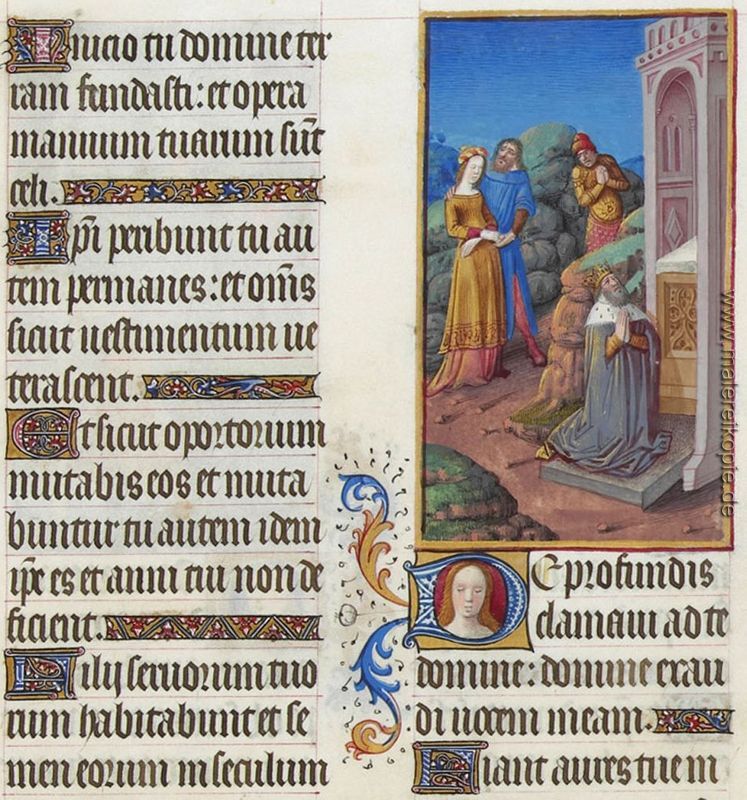 Inicio tu domine ter
ram fundasti: et opera
manuum tuarum sūt
celi.
Ipi peribunt tu au
tem permanes: et om̄s
sicut uestimentum ue
terascent.
Et sicut oportorium
mutabis eos et muta
buntur tu autem idem
ipe es et anni tui non de
ficient.
Filij seruorum tuo
rum habitabunt et se
men eorum in seculum
De profundis
clamaui ad te
domine: domine exau
di uocem meam.
Fiant aures tue in
www.malereikopie.de